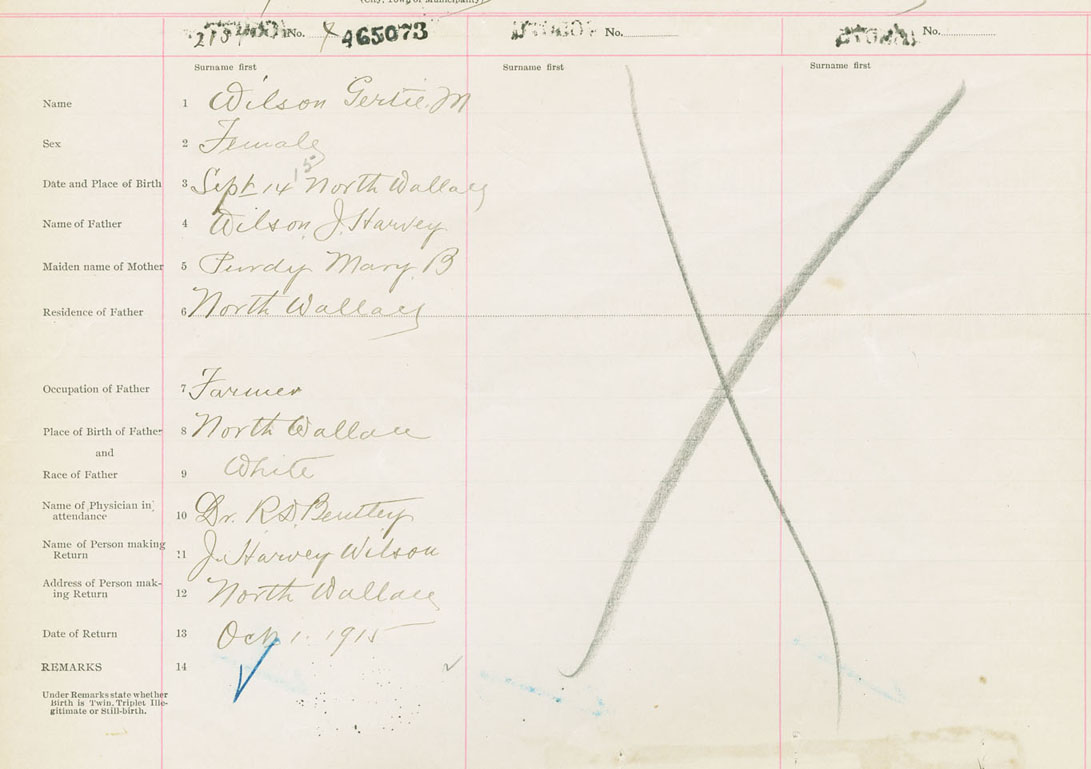 (City, Town or Municipality)
No. 465073 No. No.
Surname first Surname first Surname first
Name 1 Wilson Gertie. M
Sex 2 Female
15
Date and Place of Birth 3 Sept 14 North Wallace
Name of Father 4 Wilson J. Harvey
Maiden name of Mother 5 Purdy Mary. B
Residence of Father 6 North Wallace
Occupation of Father 7 Farmer
Place of Birth of Father 8 North Wallace
and
Race of Father 9 White
Name of Physician in
attendance 10 Dr. R.D. Bentley
Name of Person making
Return 11 J. Harvey Wilson
Address of Person mak-
ing Return 12 North Wallace
Date of Return 13 Oct 1. 1915
REMARKS 14
Under Remarks state whether
Birth is Twin, Triplet Ille-
gitimate or Still-birth.